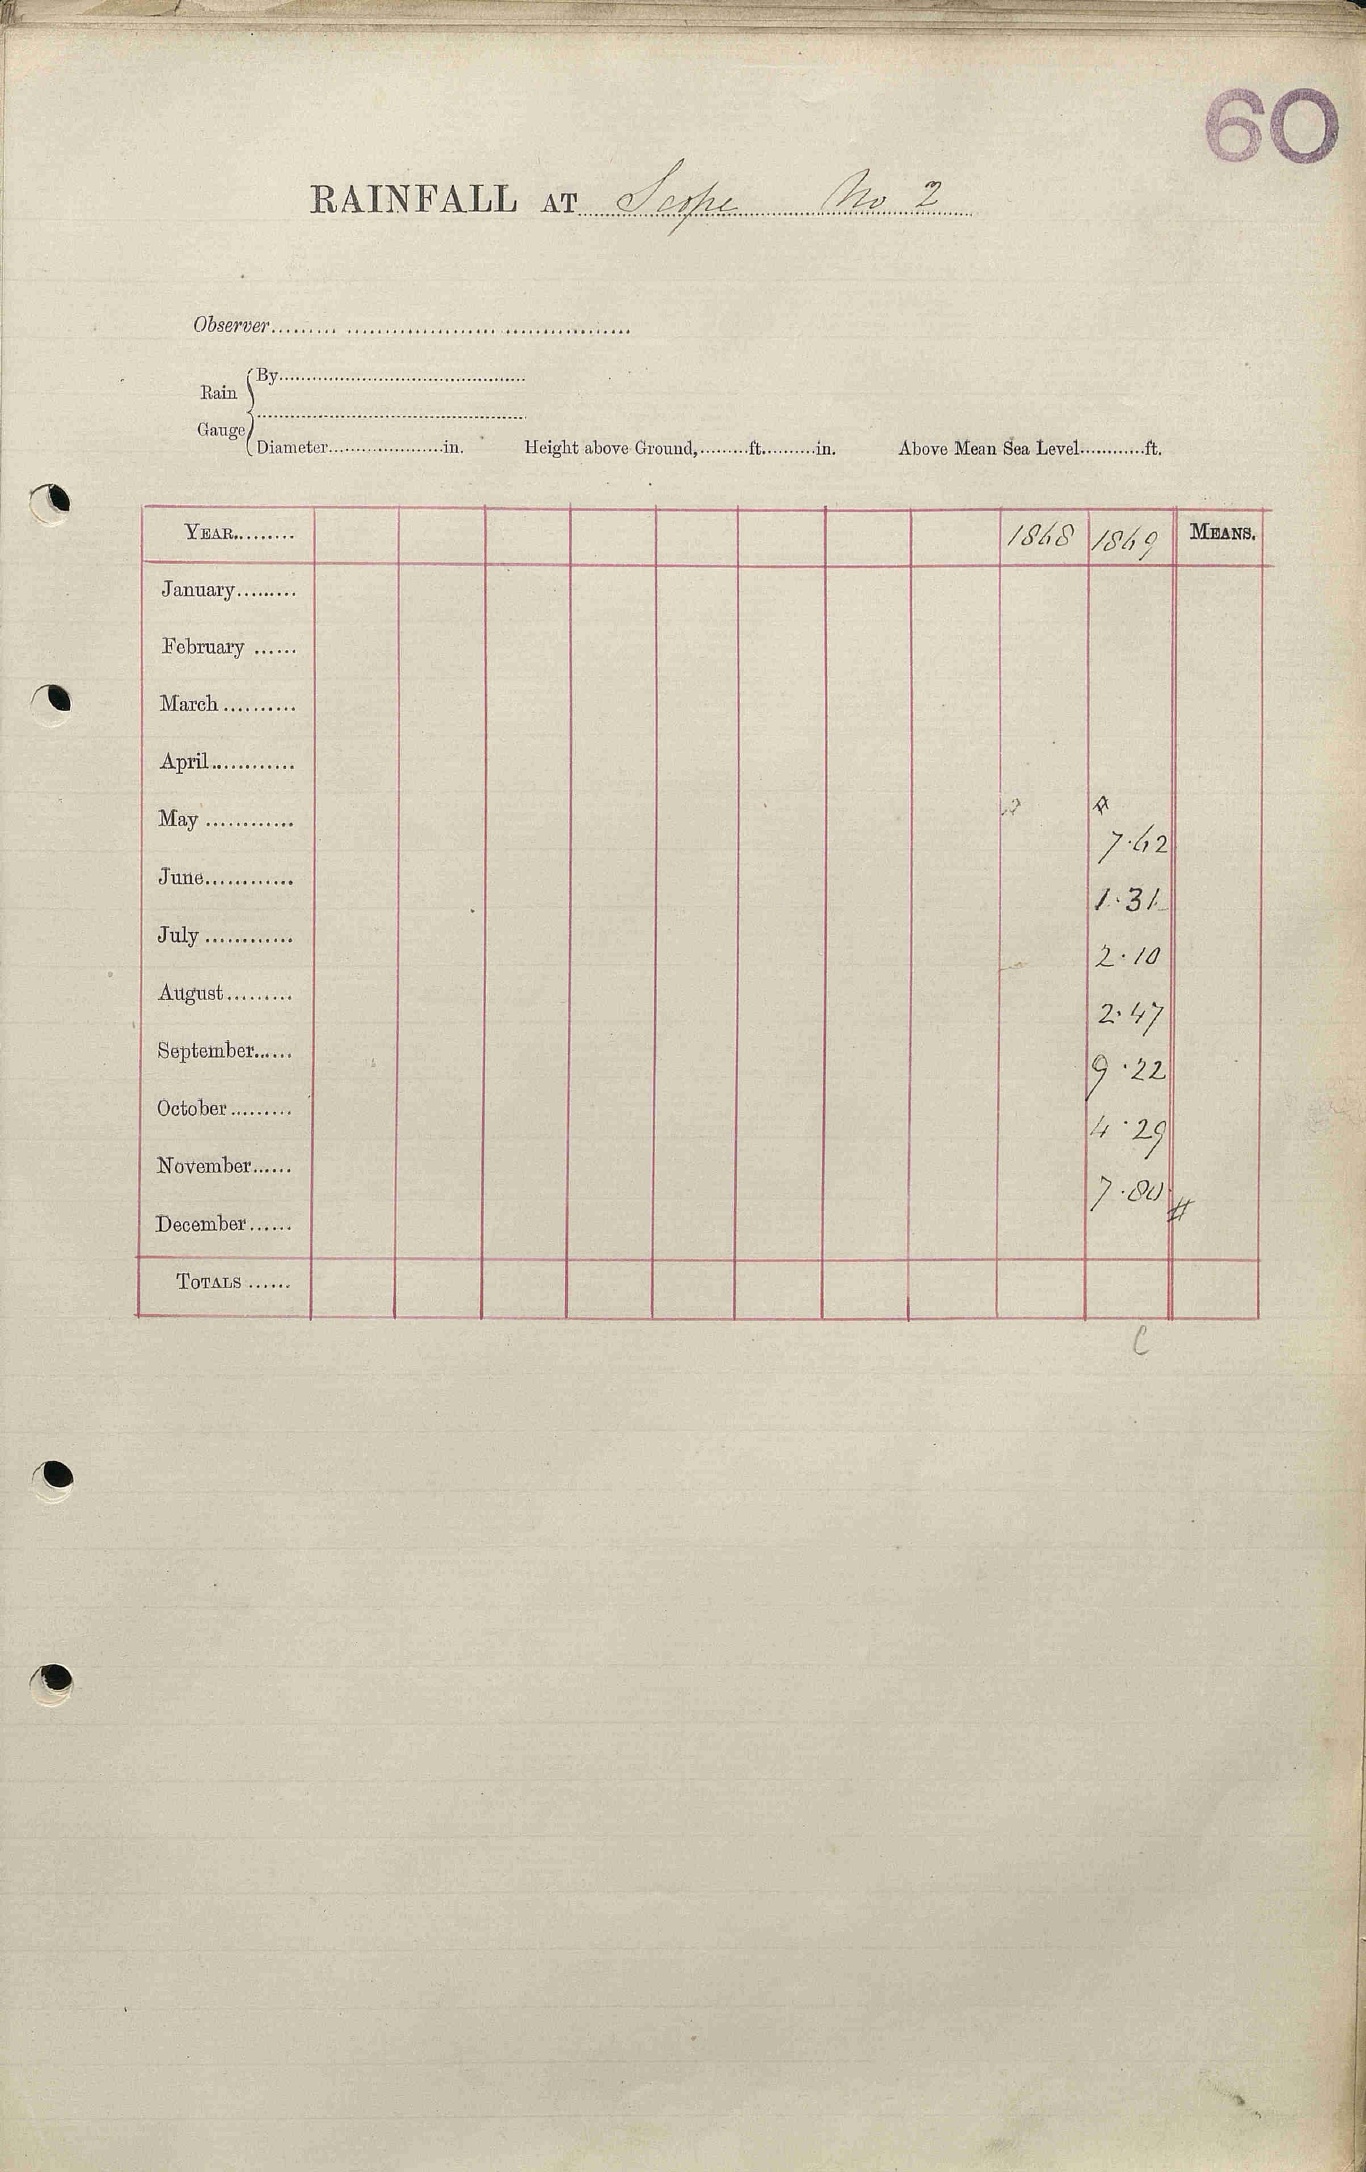 60
RAINFALL AT Scope No 2
Observer
Rain Gauge
By
Diameter in. Height above Ground, ft. in. Above Mean Sea Level ft.
YEAR 1868 1869 MEANS.
January
February
March
April
May
7.62
June
1.31
July
2.10
August
2.47
September
9.22
October
4.29
November
7.80 #
December
TOTALS
C